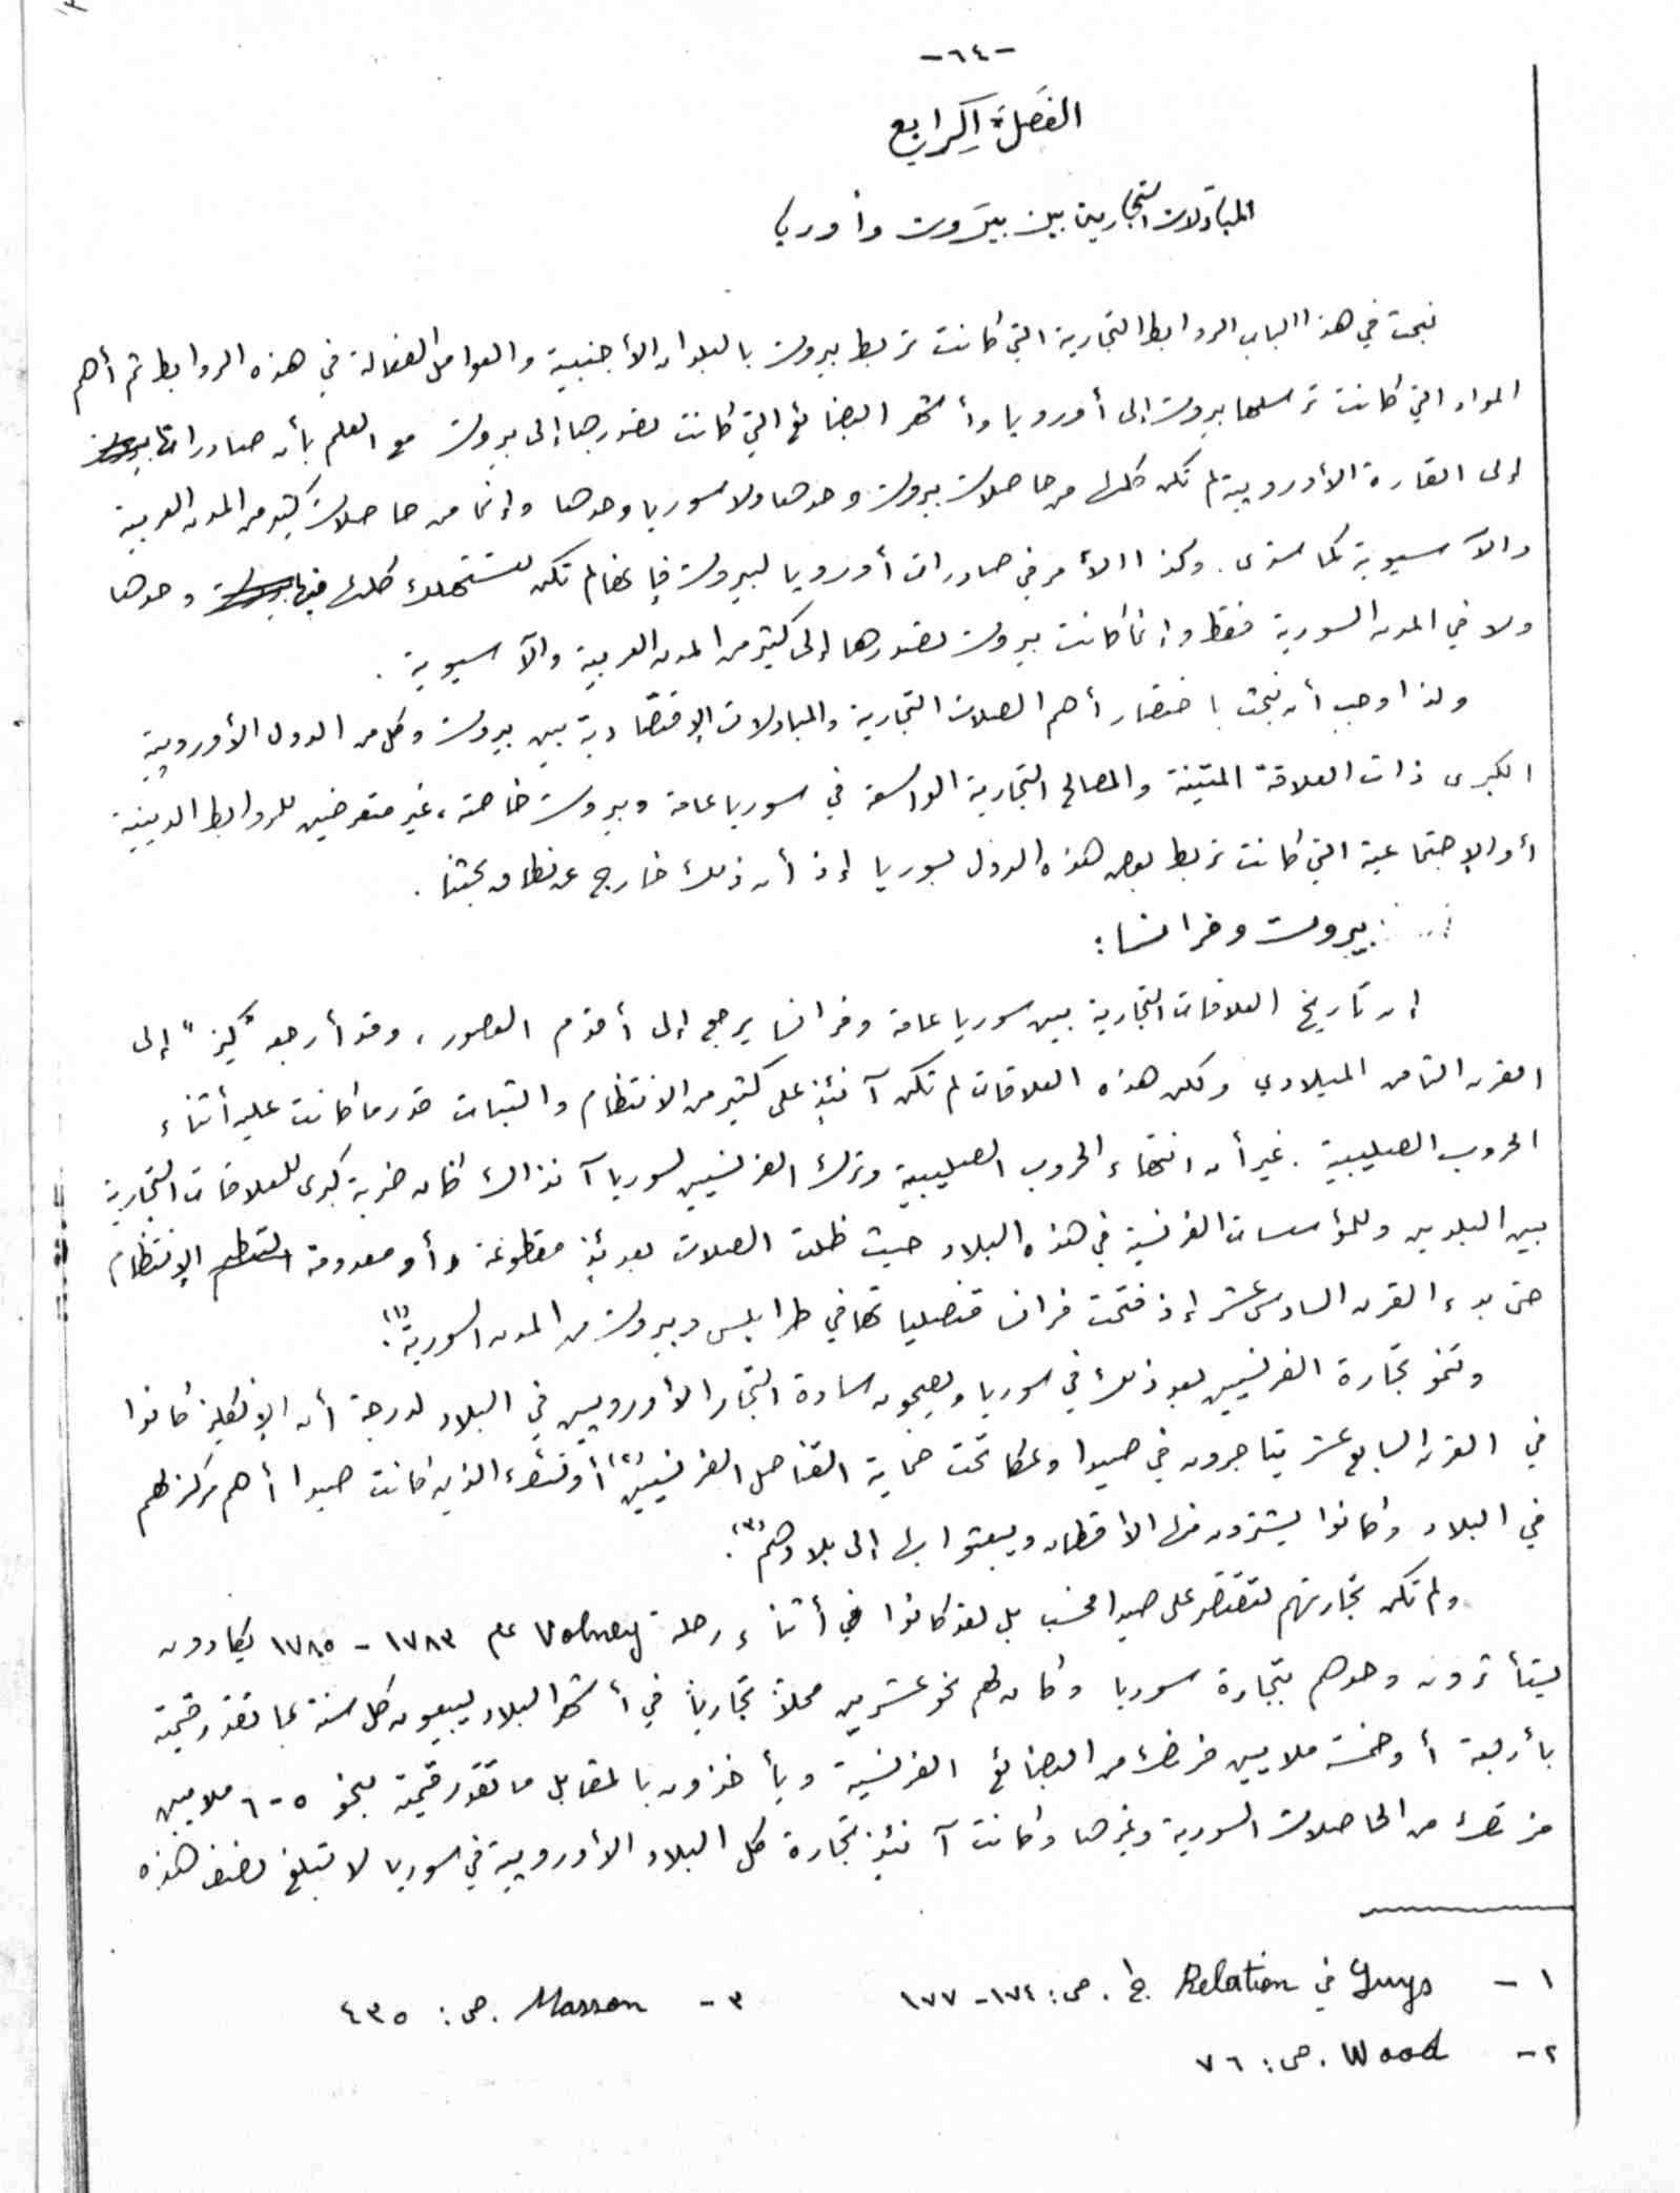 -٦٤-
الفصل الرابع
المبادلات التجارية بين بيروت وأوربا
نبحث في هذا الباب الروابط التجارية التي كانت تربط بيروت بالبلدان الأجنبية والعوامل الفعالة في هذه الروابط ثم أهم
المواد التي كانت ترسلها بيروت إلى أوروبا وأشهر البضائع التي كانت تصدرها إلى بيروت مع العلم بأن صادراتها
إلى القارة الأوروبية لم تكن كلها من حاصلات بيروت وحدها ولا سوريا وحدها وإنما من حاصلات كثير من المدن العربية
والآسيوية كما سنرى. وكذا الأمر في صادرات أوروبا لبيروت فإنها لم تكن تستهلك كلها فيها وحدها
ولا في المدن السورية فقط وإنما كانت بيروت تصدرها إلى كثير من المدن العربية والآسيوية.
ولذا وجب أن نبحث باختصار أهم الصلات التجارية والمبادلات الإقتصادية بين بيروت وكل من الدول الأوروبية
الكبرى ذات العلاقة المتينة والمصالح التجارية الواسعة في سوريا عامة وبيروت خاصة، غير متعرضين للروابط الدينية
أو الإجتماعية التي كانت تربط بعض هذه الدول بسوريا إذ أن ذلك خارج عن نطاق بحثنا.
بيروت وفرانسا:
إن تاريخ العلاقات التجارية بين سوريا عامة وفرانسا يرجع إلى أقدم العصور، وقد أرجعه "كيز" إلى
القرن الثامن الميلادي ولكن هذه العلاقات لم تكن آنئذٍ على كثير من الانتظام والثبات قدر ما كانت عليه أثناء
الحروب الصليبية. غير أن انتهاء الحروب الصليبية وترك الفرنسيين لسوريا آنذاك كان ضربة كبرى للعلاقات التجارية
بين البلدين وللمؤسسات الفرنسية في هذه البلاد حيث ظلت الصلات بعدئذٍ مقطوعة وأو معدومة الإنتظام
حتى بدء القرن السادس عشر إذ فتحت فرانسا قنصلياتها في طرابلس وبيروت من المدن السورية(١).
وتنمو تجارة الفرنسيين بعد ذلك في سوريا ويصبحون سادة التجار الأوروبيين في البلاد لدرجة أن الإنكليز كانوا
في القرن السابع عشر يتاجرون في صيدا وعكا تحت حماية القناصل الفرنسيين(٢) أولئك الذين كانت صيدا أهم مركز لهم
في البلاد وكانوا يشترون منها الأقطان ويبعثوا بها إلى بلادهم(٣).
ولم تكن تجارتهم لتقتصر على صيدا فحسب بل لقد كانوا في أثناء رحلة Volney عام ١٧٨٣ - ١٧٨٥ يكادون
يستأثرون وحدهم بتجارة سوريا وكان لهم نحو عشرين محلاً تجارياً في أشهر البلاد يبيعون كل سنة بما تقدر قيمته
بأربعة أو خمسة ملايين فرنك من البضائع الفرنسية ويأخذون بالمقابل ما تقدر قيمته بنحو ٥-٦ ملايين
فرنك من الحاصلات السورية وغيرها وكانت آنئذٍ تجارة كل البلاد الأوروبية في سوريا لا تبلغ نصف هذه
١ - Guys في Relation ج١. ص: ١٧٤-١٧٧
٣ - Masson. ص: ٤٣٥
٢ - Wood. ص: ٧٦